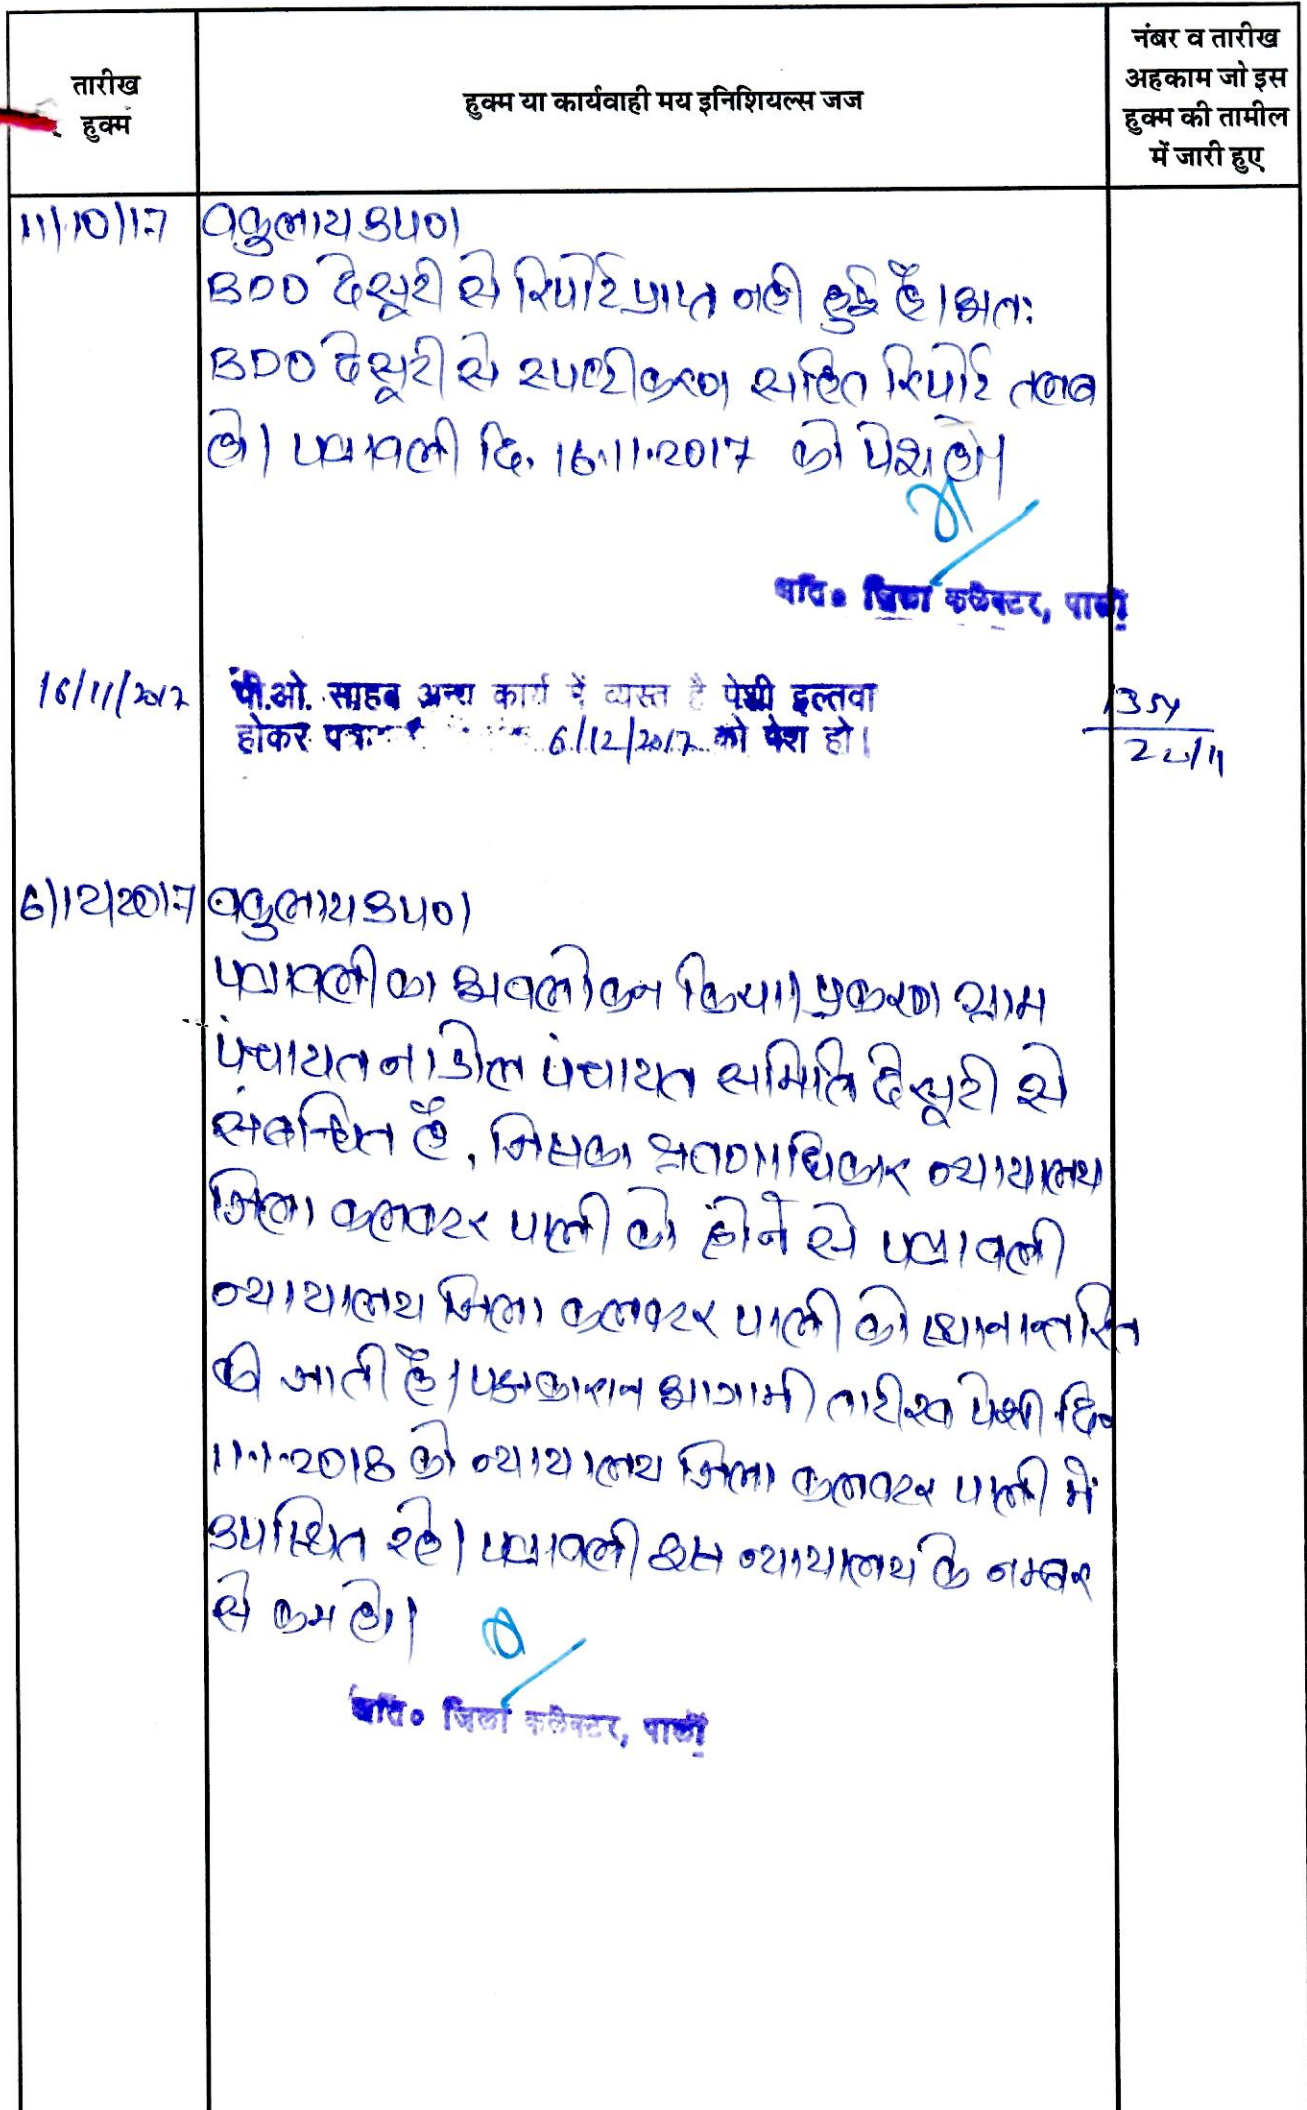 तारीख
हुक्म
हुक्म या कार्यवाही मय इनिशियल्स जज
नंबर व तारीख
अहकाम जो इस
हुक्म की तामील
में जारी हुए
11/10/17 वकुलाय उप0।
BDO देसूरी से रिपोर्ट प्राप्त नही हुई है। अतः
BDO देसूरी से स्पष्टीकरण सहित रिपोर्ट तलब
हो। पत्रावली दि. 16.11.2017 को पेश हो।
अति० जिला कलेक्टर, पाली
16/11/2017 पी.ओ. साहब अन्य कार्य में व्यस्त है पेशी इल्तवा
होकर 6/12/2017 को पेश हो।
6/12/2017 वकुलाय उप0।
पत्रावली का अवलोकन किया। प्रकरण ग्राम
पंचायत नाडोल पंचायत समिति देसूरी से
संबन्धित है, जिसका श्रवणाधिकार न्यायालय
जिला कलक्टर पाली को होने से पत्रावली
न्यायालय जिला कलक्टर पाली को स्थानान्तरित
की जाती है। पक्षकारान आगामी तारीख पेशी दि०
11.1.2018 को न्यायालय जिला कलक्टर पाली में
उपस्थित रहे। पत्रावली इस न्यायालय के नम्बर
से कम हो।
अति० जिला कलेक्टर, पाली